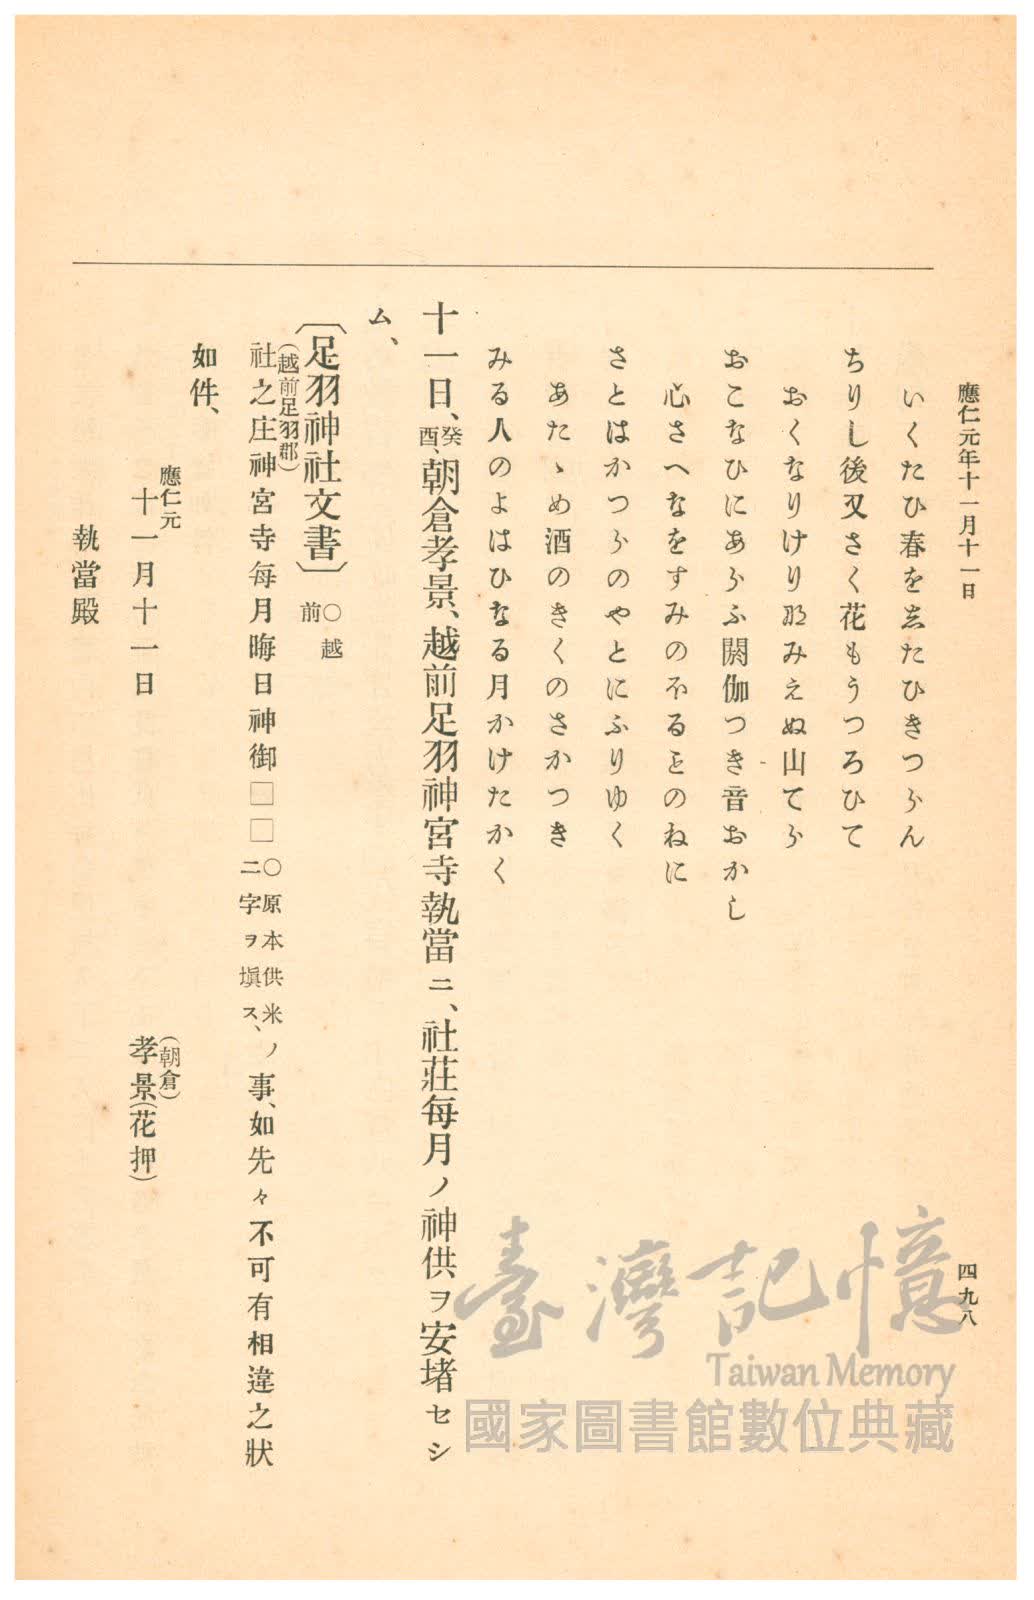 應仁元年十一月十一日
四九八
いくたひ春を志たひきつらん
ちりし後又さく花もうつろひて
おくなりけり那みえぬ山てら
おこなひにあらふ閼伽つき音おかし
心さへなをすみのほることのねに
さとはかつらのやとにふりゆく
あたゝめ酒のきくのさかつき
みる人のよはひなる月かけたかく
十一日、癸酉、朝倉孝景、越前足羽神宮寺執當ニ、社莊每月ノ神供ヲ安堵セシ
ム、
〔足羽神社文書〕○越前
(越前足羽郡)
社之庄神宮寺每月晦日神御□□○原本供米二字ヲ塡ス、ノ事、如先々不可有相違之狀
如件、
應仁元
十一月十一日
(朝倉)
孝景(花押)
執當殿
臺灣記憶
Taiwan Memory
國家圖書館數位典藏